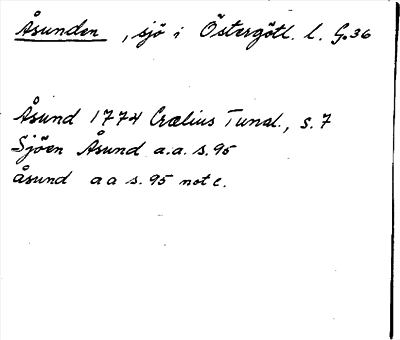 Åsunden, sjö i Östergötl. l. G.36
Åsund 1774 Crælius Tunal., s. 7
Sjöen Åsund a.a. s. 95
åsund a a s. 95 not c.